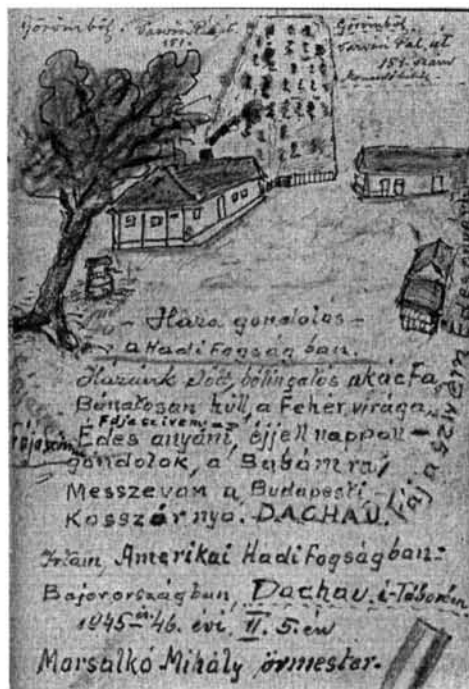 Görömböl. Tarvári P. út.
151.
Görömböl
Tarvári Pál út
151. szám
– Haza gondolás –
a Hadi Fogságban.
Házunk előtt, bólingatós akác Fa,
Bánatosan hull, a Fehér virága,
Fáj a szívem,
Édes anyám, éjjel nappall –
gondolok, a Babámra,
Messzevan a Budapesti –
Kosszárnya. DACHAU.
Fáj a szívem
Fáj a szívem
Irtam, Amerikai Hadi Fogságban:
Bajorországban, Dachau. i-Táborban
1945-in 46. évi, II. 5.-én
Marsalkó Mihály őrmester.